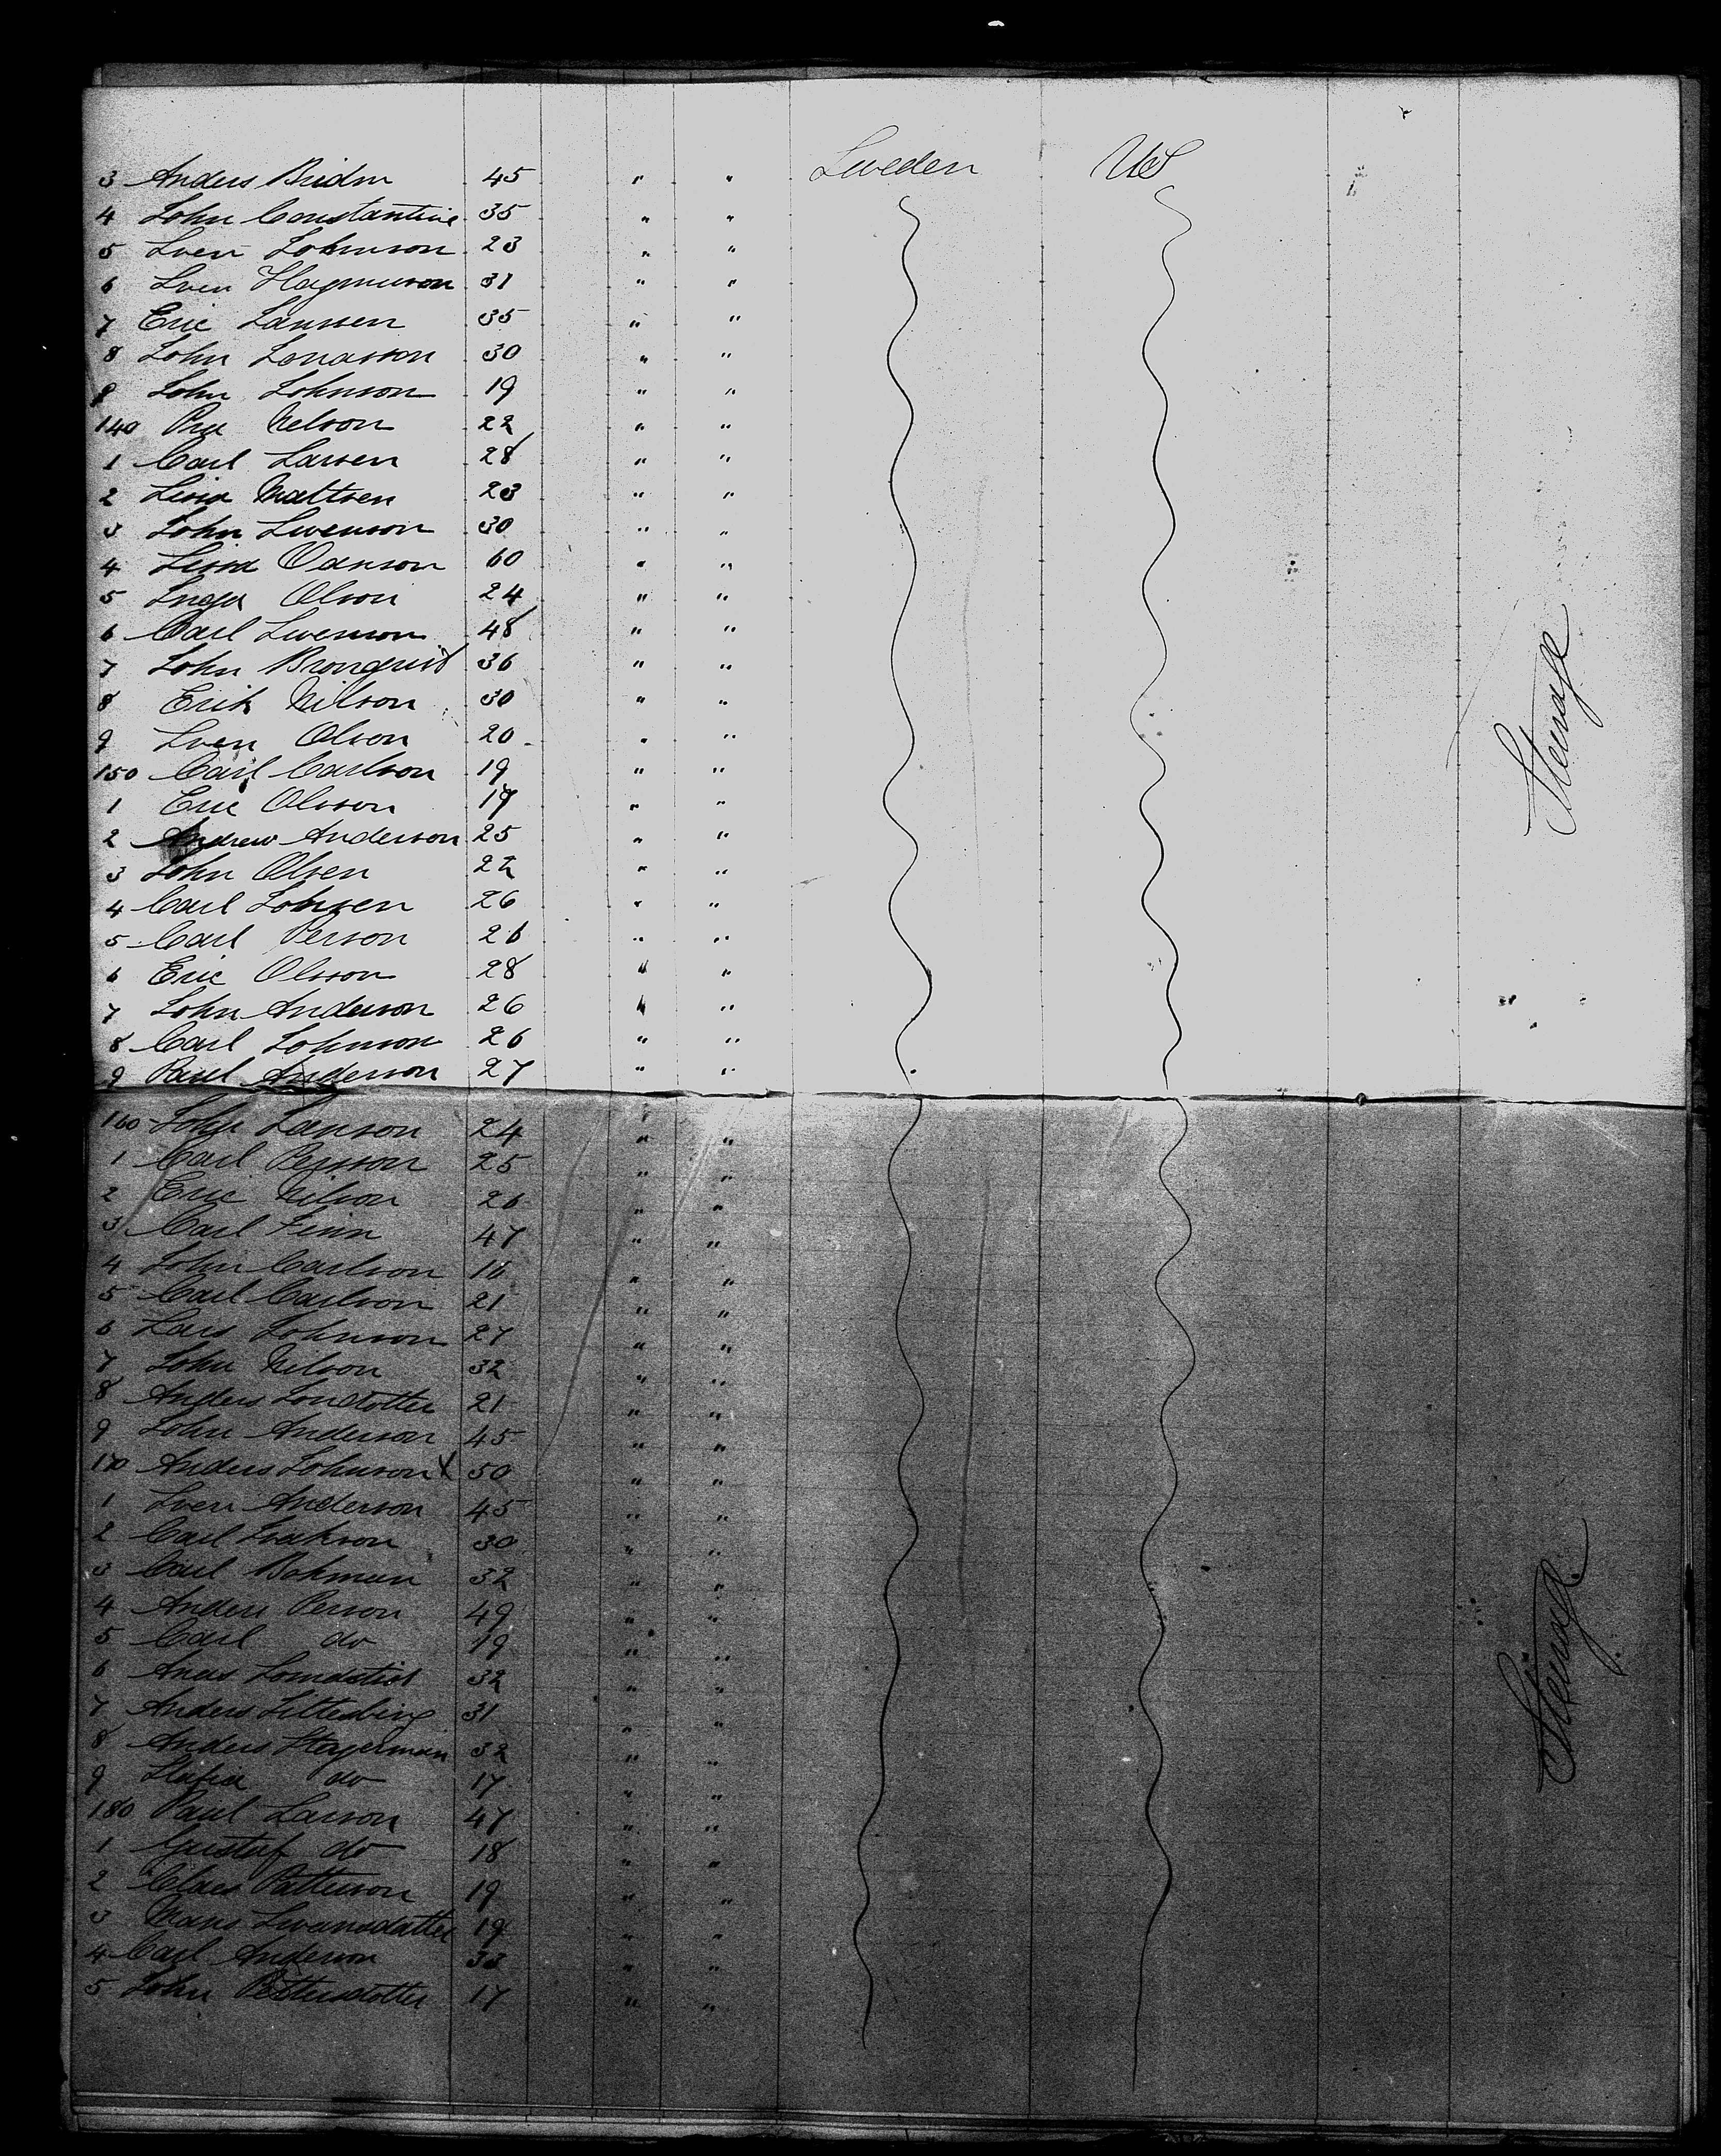 3 Anders Bridm 45 " " Sweden US
4 John Constantine 35 " "
5 Sven Johnson 23 " "
6 Sven Hagmuson 31 " "
7 Eric Janssen 35 " "
8 John Jonasson 30 " "
9 John Johnson 19 " "
140 Nelson 22 " "
1 Carl Larsen 28 " "
2 Lisa Mattsen 23 " "
3 John Swenson 30 " "
4 Lissa Danson 60 " "
5 Inga Olson 24 " "
6 Carl Swenson 48 " "
7 John Bronquist 36 " "
8 Erik Nilson 30 " "
9 Sven Olson 20 " "
150 Carl Carlson 19 " "
1 Eric Olsson 19 " "
2 Andrew Anderson 25 " "
3 John Olsen 22 " "
4 Carl Johsen 26 " "
5 Carl Person 26 " "
6 Eric Olsson 28 " "
7 John Anderson 26 " "
8 Carl Johnson 26 " "
9 Paul Anderson 27 " "
Steerage
160 John Janson 24 " "
1 Carl Persson 25 " "
2 Eric Nilson 26 " "
3 Carl Finn 47 " "
4 John Carlson 16 " "
5 Carl Carlson 21 " "
6 Lars Johnson 27 " "
7 John Nilson 32 " "
8 Anders Jondotter 21 " "
9 John Anderson 45 " "
170 Anders Johnson X 50 " "
1 Sven Anderson 45 " "
2 Carl Isakson 30 " "
3 Carl Bohman 32 " "
4 Anders Person 49 " "
5 Carl do 19 " "
6 32 " "
7 Anders 31 " "
8 Anders Hagerman 32 " "
9 do 17 " "
180 Paul Larson 47 " "
1 Gustaf do 18 " "
2 Claes Patterson 19 " "
3 Mans Swansdatter 19 " "
4 Carl Anderson 33 " "
5 John Pettersdotter 17 " "
Steerage